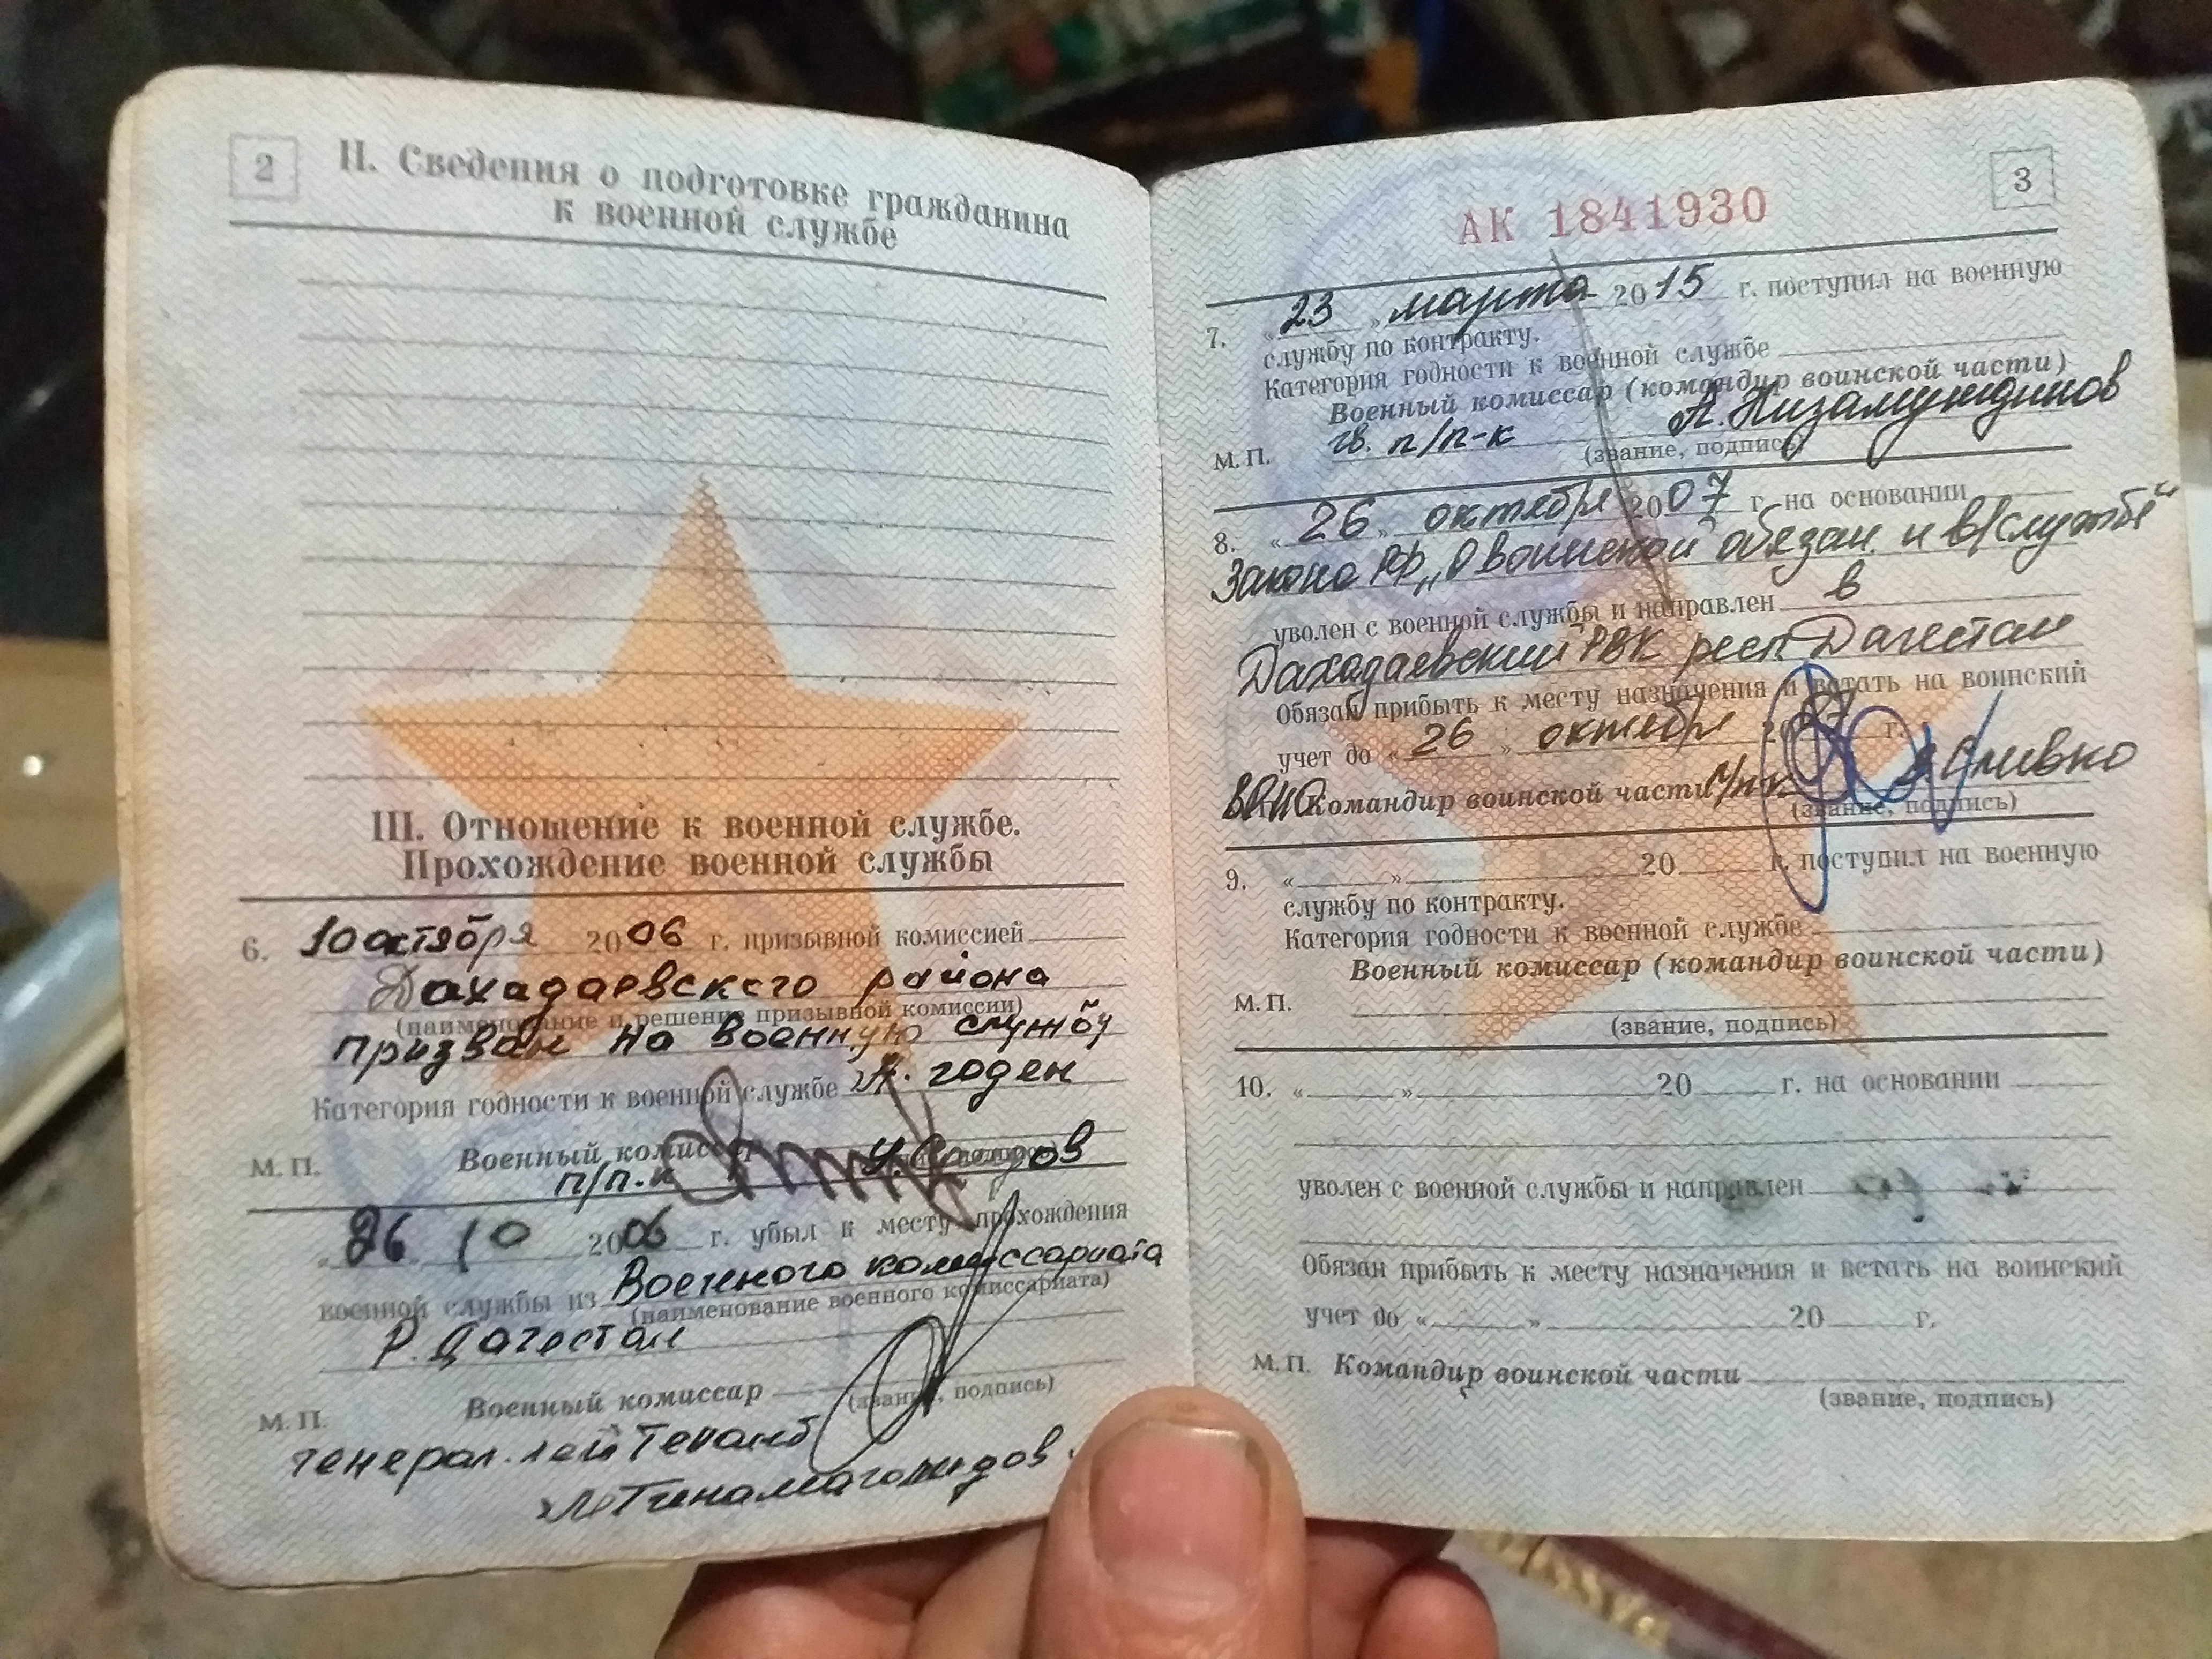 2
II. Сведения о подготовке гражданина
к военной службе
III. Отношение к военной службе.
Прохождение военной службы
6. 10 октября 2006 г. призывной комиссией
Дахадаевского района
(наименование и решение призывной комиссии)
призван на военную службу
Категория годности к военной службе „А". годен
М. П. Военный комиссар
п/п-к
26 10 2006 г. убыл к месту прохождения
военной службы из Военного комиссариата
(наименование военного комиссариата)
Р. Дагестан
Военный комиссар
(звание, подпись)
М. П.
генерал.лейтенант
М Тинамагомедов
3
АК 1841930
7. «23» марта 2015 г. поступил на военную
службу по контракту.
Категория годности к военной службе
Военный комиссар (командир воинской части)
М. П. гв. п/п-к А. Низамутдинов
(звание, подпись)
8. «26» октября 2007 г. на основании
Закона РФ „О воинской обязан. и в/службе"
уволен с военной службы и направлен в
Дахадаевский РВК респ. Дагестан
Обязан прибыть к месту назначения и встать на воинский
учет до «26» октября 2007 г.
ВРИО Командир воинской части п/п-к Сливко
(звание, подпись)
9. « » 20 г. поступил на военную
службу по контракту.
Категория годности к военной службе
Военный комиссар (командир воинской части)
М. П.
(звание, подпись)
10. « » 20 г. на основании
уволен с военной службы и направлен
Обязан прибыть к месту назначения и встать на воинский
учет до « » 20 г.
М. П. Командир воинской части
(звание, подпись)